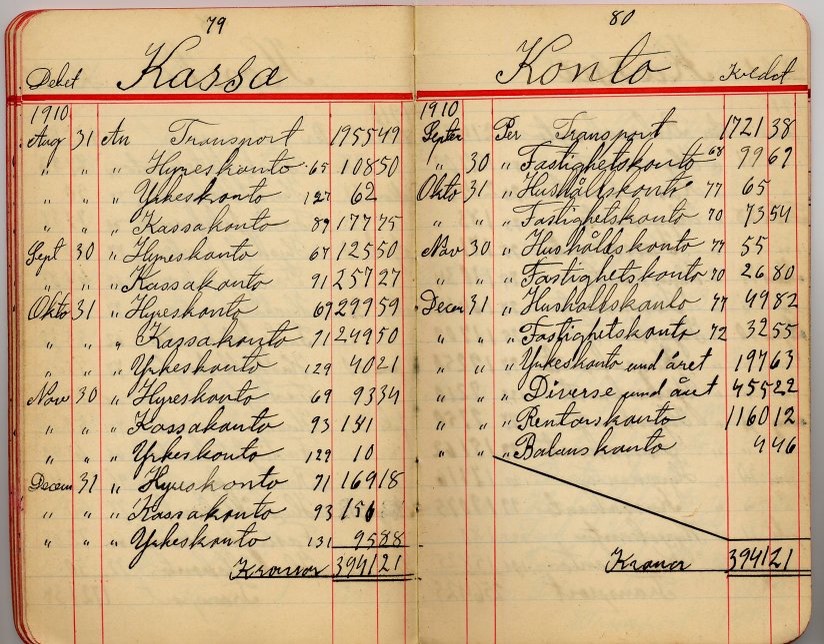 79
Debet Kassa
1910
Aug 31 An Transport 1955 49
" " " Hyreskonto 65 108 50
" " " Yrkeskonto 127 62
" " " Kassakonto 89 177 75
Sept 30 " Hyreskonto 67 125 50
" " " Kassakonto 91 257 27
Okto 31 " Hyreskonto 69 299 59
" " " Kassakonto 71 249 50
" " " Yrkeskonto 129 40 21
Nov 30 " Hyreskonto 69 93 34
" " " Kassakonto 93 181
" " " Yrkeskonto 129 10
Decem 31 " Hyreskonto 71 169 18
" " " Kassakonto 93 156
" " " Yrkeskonto 131 95 88
Kronor 3941 21
80
Konto Kredit
1910
Septer Per Transport 1721 38
" 30 " Fastighetskonto 68 99 67
Okto 31 " Hushållskonto 77 65
" " " Fastighetskonto 70 73 54
Nov 30 " Hushållskonto 77 55
" " " Fastighetskonto 70 26 80
Decem 31 " Hushållskonto 77 49 82
" " " Fastighetskonto 72 32 55
" " " Yrkeskonto und året 197 63
" " " Diverse und året 455 22
" " " Rentors konto 1160 12
" " " Balans konto 4 46
Kronor 3941 21